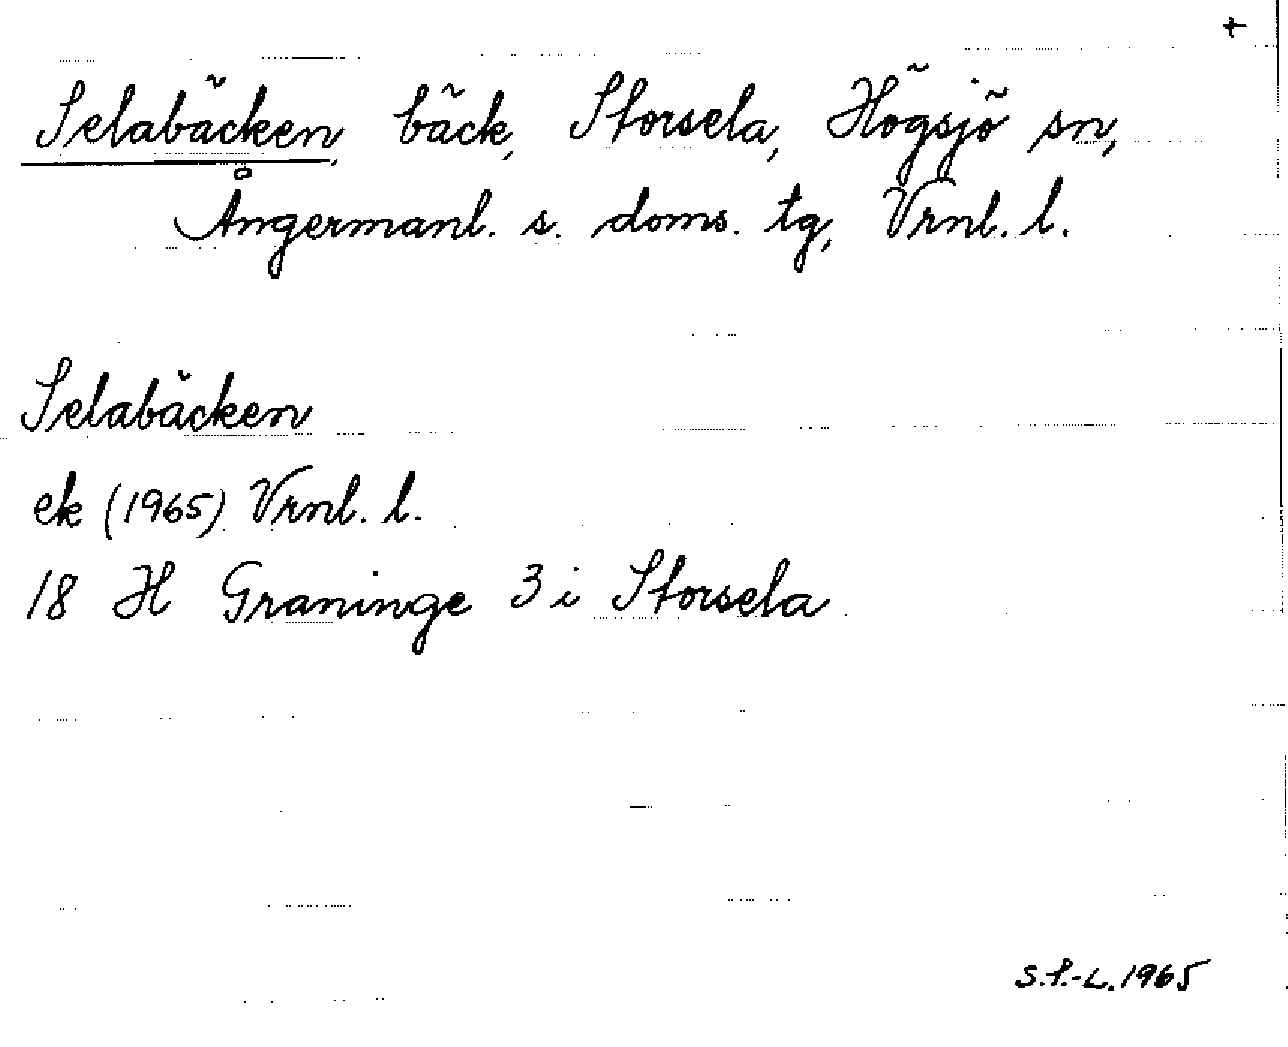 +
Selabäcken, bäck, Storsela, Högsjö sn,
Ångermanl. s. doms. tg, Vrnl. l.
Selabäcken
ek (1965) Vrnl. l.
18 H Graninge 3 i Storsela
S.P.-L. 1965